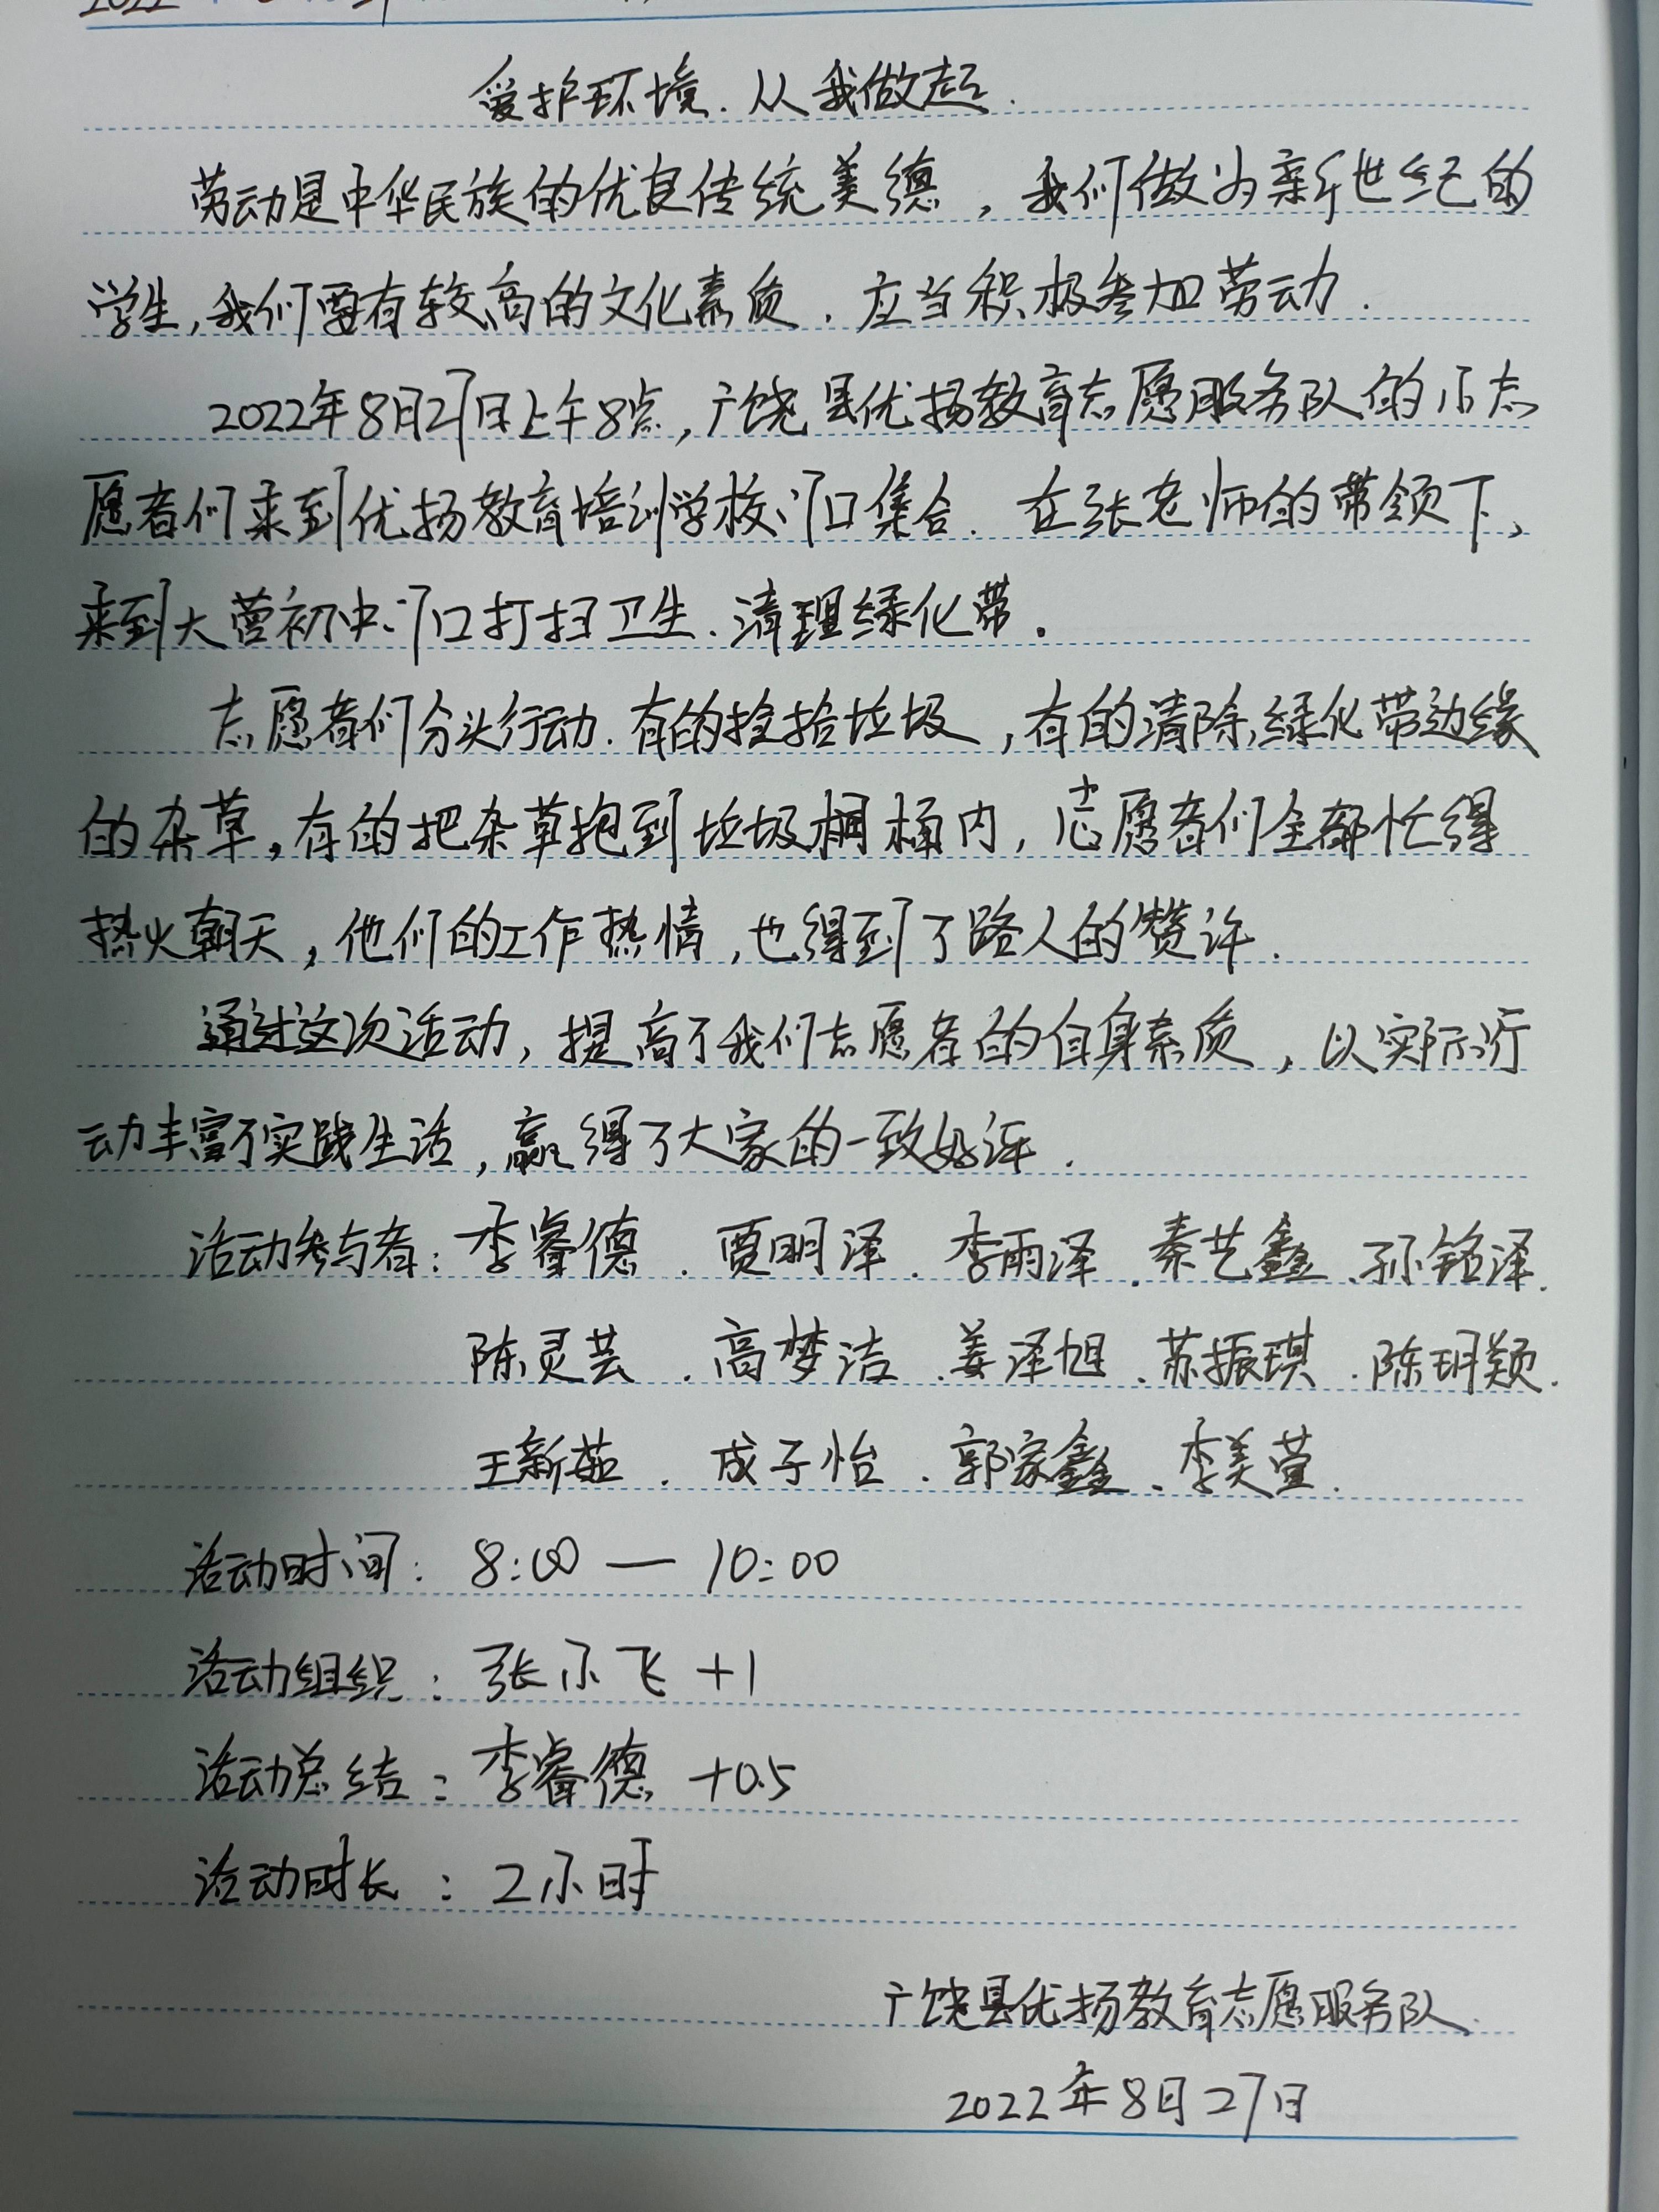 2022
爱护环境.从我做起.
劳动是中华民族的优良传统美德，我们做为新世纪的
学生,我们要有较高的文化素质.应当积极参加劳动.
2022年8月27日上午8点,广饶县优扬教育志愿服务队的小志
愿者们来到优扬教育培训学校门口集合.在张老师的带领下,
来到大营初中门口打扫卫生、清理绿化带。
志愿者们分头行动.有的捡拾垃圾,有的清除绿化带边缘
的杂草,有的把杂草抱到垃圾桶内,志愿者们全都忙得
热火朝天,他们的工作热情,也得到了路人的赞许.
通过这次活动,提高了我们志愿者的自身素质,以实际行
动丰富了实践生活,赢得了大家的一致好评.
活动参与者:李睿德.贾明泽.李雨泽.秦艺鑫、孙铭泽.
陈灵芸.高梦洁.姜泽旭、苏振琪.陈玥颖.
王新茹.成子怡.郭家鑫、李美萱.
活动时间:8:00—10:00
活动组织:张小飞+1
活动总结:李睿德+0.5
活动时长:2小时
广饶县优扬教育志愿服务队.
2022年8月27日